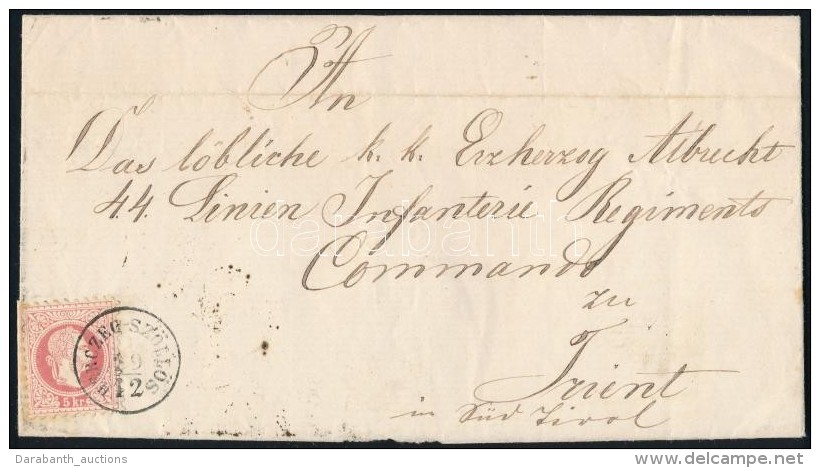 An
Das löbliche k. k. Erzherzog Albrecht
44. Linien Infanterie Regiments
Commando
zu
Trient
in Süd Tirol
HERCZEG-SZÖLLÖS
12
5 kr
darabanth
Darabanth_auctions
delcampe.net